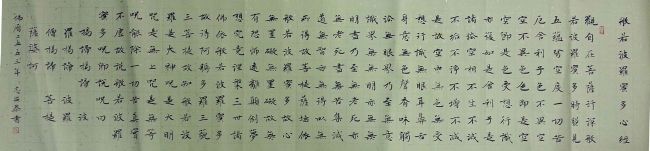 般若波羅蜜多心經
觀自在菩薩行深般
若波羅蜜多時照見
五蘊皆空度一切苦
厄舍利子色不異空
空不異色色即是空
空即是色受想行識
亦復如是舍利子是
諸法空相不生不滅
不垢不淨不增不減
是故空中無色無受
想行識無眼耳鼻舌
身意無色聲香味觸
法無眼界乃至無意
識界無無明亦無無
明盡乃至無老死亦
無老死盡無苦集滅
道無智亦無得以無
所得故菩提薩埵依
般若波羅蜜多故心
無罣礙無罣礙故無
有恐怖遠離顛倒夢
想究竟涅槃三世諸
佛依般若波羅蜜多
故得阿耨多羅三藐
三菩提故知般若波
羅蜜多是大神呪是大明
呪是無上呪是無等
等呪能除一切苦真實
不虛故說般若波羅
蜜多呪即說呪曰
揭諦揭諦 波
羅揭諦 波羅
僧揭諦 菩提
薩婆訶
佛曆二五五三年 書